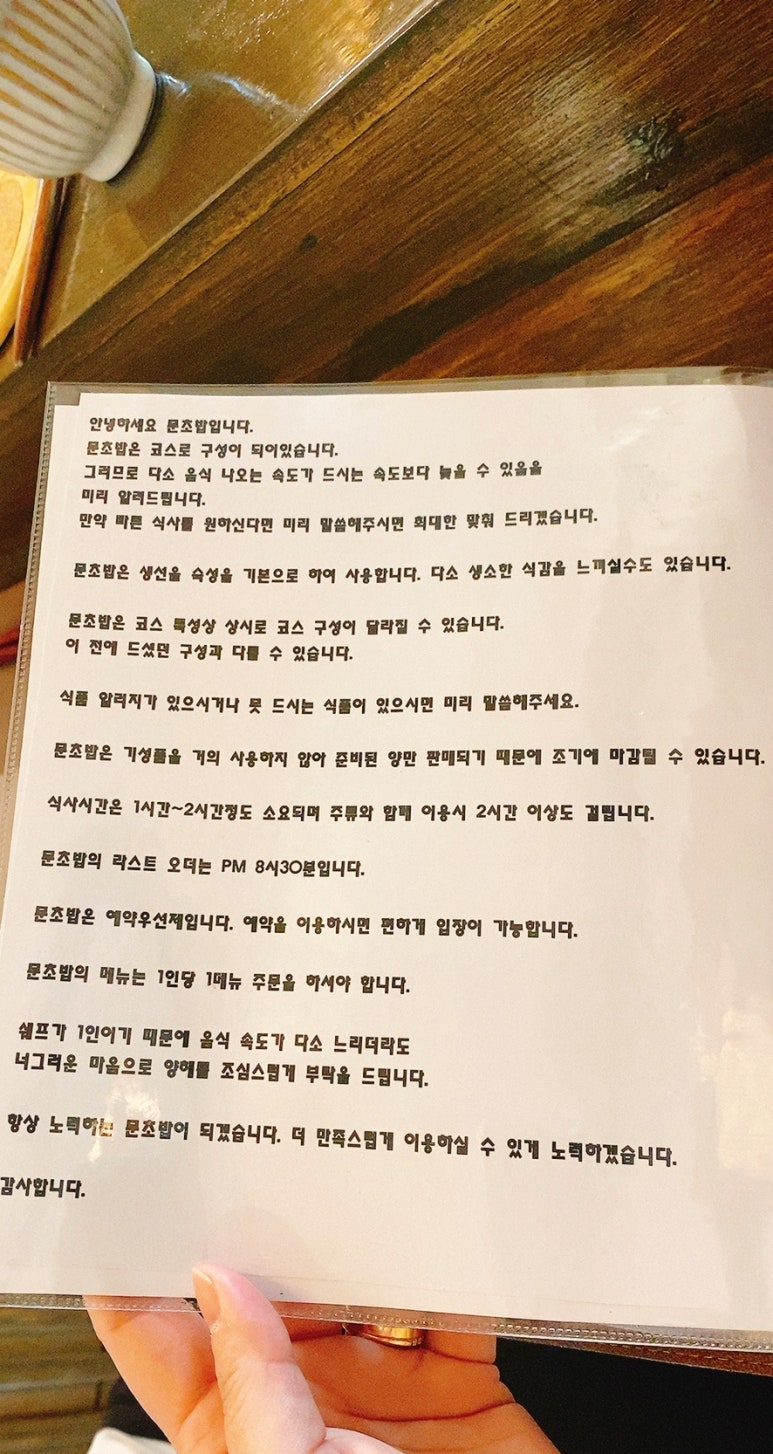 안녕하세요 문초밥입니다.
문초밥은 코스로 구성이 되어있습니다.
그러므로 다소 음식 나오는 속도가 드시는 속도보다 늦을 수 있음을
미리 알려드립니다.
만약 빠른 식사를 원하신다면 미리 말씀해주시면 최대한 맞춰 드리겠습니다.
문초밥은 생선을 숙성을 기본으로 하여 사용합니다. 다소 생소한 식감을 느끼실수도 있습니다.
문초밥은 코스 특성상 상시로 코스 구성이 달라질 수 있습니다.
이 전에 드셨던 구성과 다를 수 있습니다.
식품 알러지가 있으시거나 못 드시는 식품이 있으시면 미리 말씀해주세요.
문초밥은 기성품을 거의 사용하지 않아 준비된 양만 판매되기 때문에 조기에 마감될 수 있습니다.
식사시간은 1시간~2시간정도 소요되며 주류와 함께 이용시 2시간 이상도 걸립니다.
문초밥의 라스트 오더는 PM 8시30분입니다.
문초밥은 예약우선제입니다. 예약을 이용하시면 편하게 입장이 가능합니다.
문초밥의 메뉴는 1인당 1메뉴 주문을 하셔야 합니다.
쉐프가 1인이기 때문에 음식 속도가 다소 느리더라도
너그러운 마음으로 양해를 조심스럽게 부탁을 드립니다.
항상 노력하는 문초밥이 되겠습니다. 더 만족스럽게 이용하실 수 있게 노력하겠습니다.
감사합니다.